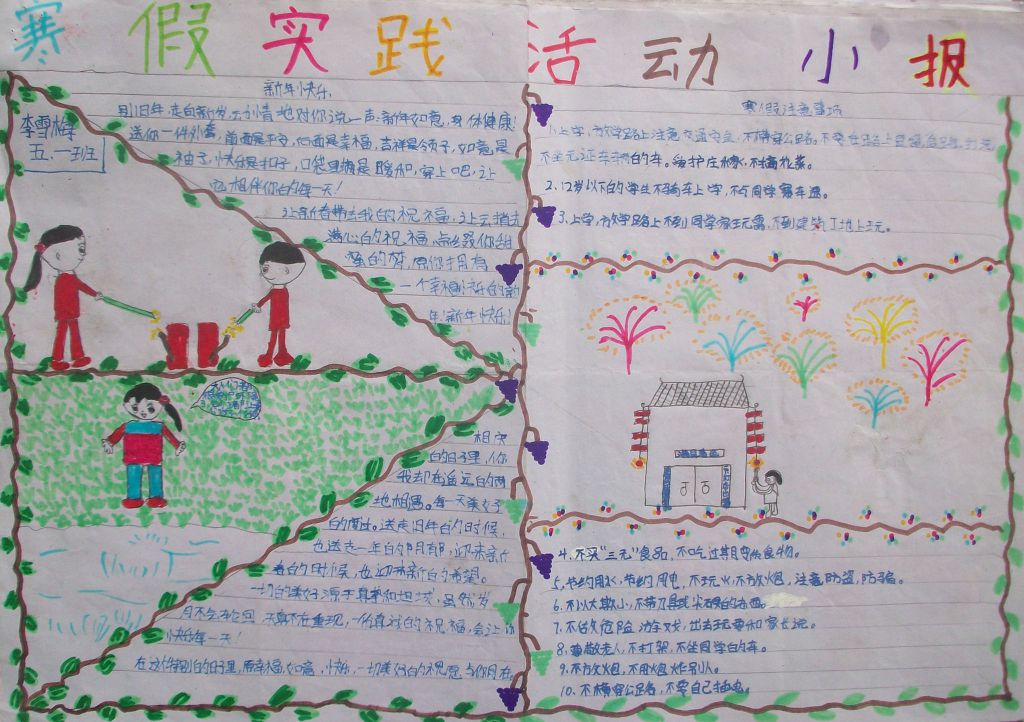 寒假实践活动小报
李雪梅
五.一班
新年快乐
别旧年,走向新岁,去小情地对你说一声:新年如意,身体健康!
送你一件外套,前面是平安,后面是幸福,吉祥是领子,如意是
袖子,快乐是扣子,口袋里满是暖和,穿上吧,让
它相伴你的每一天!
让新春带去我的祝福,让云捎去
满心的祝福,点缀你甜
的梦,愿你拥有
一个幸福快乐的新
年!新年快乐!
相
的日子里,你
我却在遥远的两
地相遇。每一天
的度过。送走旧年的时候,
也送走一年的
春的时候,也迎来新的希望。
一切的美好源于真挚和坦诚,虽然岁
月不会轮回,天真不在重现,一份真诚的祝福,会让你
快乐每一天!
在这特别的日子里,愿幸福,如意,快乐,一切美好的祝愿与你同在。
寒假注意事项
1.上学,放学路上注意交通安全,不横穿公路,不要在路上
不坐无证车辆的车。爱护庄稼,不摘花菜。
2.12岁以下的学生不骑车上学,不与同学赛车速。
3.上学,放学路上不到同学家玩需,不到建筑工地上玩。
4.不买“三无”食品,不吃过期变质食物。
5.节约用水,节约用电,不玩火,不放炮,注意防盗,防骗。
6.不以大欺小,不带刀具或尖硬的东西。
7.不做危险游车戏,出去玩要和家长说。
8.尊敬老人,不打架,不坐同学的车。
9.不放火炮,不用炮炸别人。
10.不横穿公路,不要自己插电。